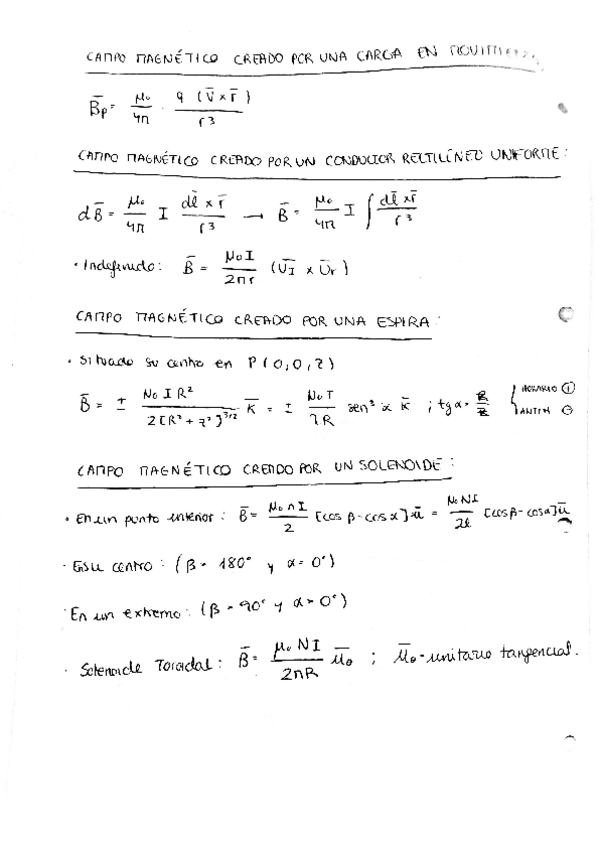 CAMPO MAGNÉTICO CREADO POR UNA CARGA EN MOVIMIENTO
B̄p = μ₀/4π · q (v̄ × r̄)/r³
CAMPO MAGNÉTICO CREADO POR UN CONDUCTOR RECTILÍNEO UNIFORME:
dB̄ = μ₀/4π I dl̄ × r̄/r³ → B̄ = μ₀/4π I ∫ dl̄ × r̄/r³
· Indefinido: B̄ = μ₀I/2πr (ŪI × Ūr)
CAMPO MAGNÉTICO CREADO POR UNA ESPIRA:
· Situado su centro en P(0,0,z)
B̄ = ± μ₀ I R²/2[R² + z²]^3/2 K̄ = ± μ₀ I/2R sen³ α K̄ ; tg α = R/z HORARIO ANTIH
CAMPO MAGNÉTICO CREADO POR UN SOLENOIDE:
· En un punto interior: B̄ = μ₀ n I/2 [cos β - cos α]·ū = μ₀ N I/2l [cos β - cos α] ū
· En su centro: (β = 180° y α = 0°)
· En un extremo: (β = 90° y α = 0°)
· Solenoide Toroidal: B̄ = μ₀ N I/2πR μ̄₀ ; μ̄₀ = unitario tangencial.